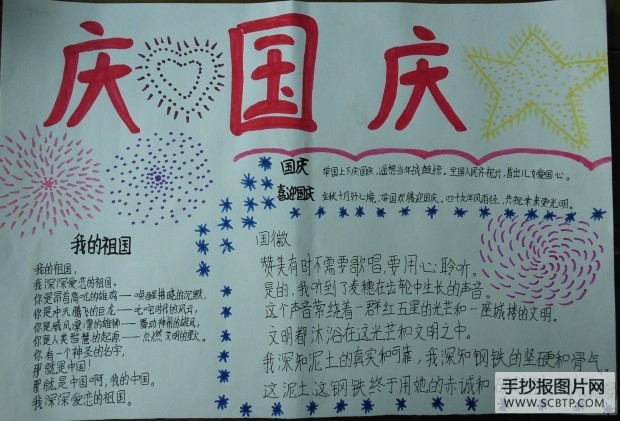 庆国庆
国庆 举国上下庆国庆,遥想当年战鼓擂。全国人民齐祝兴,首出儿女爱国心。
喜迎国庆 金秋十月好心境,举国欢腾迎国庆。四十九年风雨经,共祝未来更光明。
我的祖国
我的祖国,
我深深爱恋的祖国。
你是昂首高吭的雄鸡——唤醒拂晓的沉默,
你是冲天腾飞的巨龙——叱咤时代的风云,
你是威风凛凛的雄狮——舞动神州的雄风,
你是人类智慧的起源——点燃文明的
你有一个神圣的名字,
那就是中国!
那就是中国啊,我的中国。
我深深爱恋的祖国。
国徽
赞美有时不需要歌唱,要用心聆听。
是的,我听到了麦穗在齿轮中生长的声音。
这个声音萦绕着一群红五星的光芒和一座城楼的文明。
文明都沐浴在这光芒和文明之中。
我深知泥土的真实和可靠,我深知钢铁的坚硬和骨气
这泥土这钢铁终于用她的赤诚和
手抄报图片网
WWW.SCBTP.COM